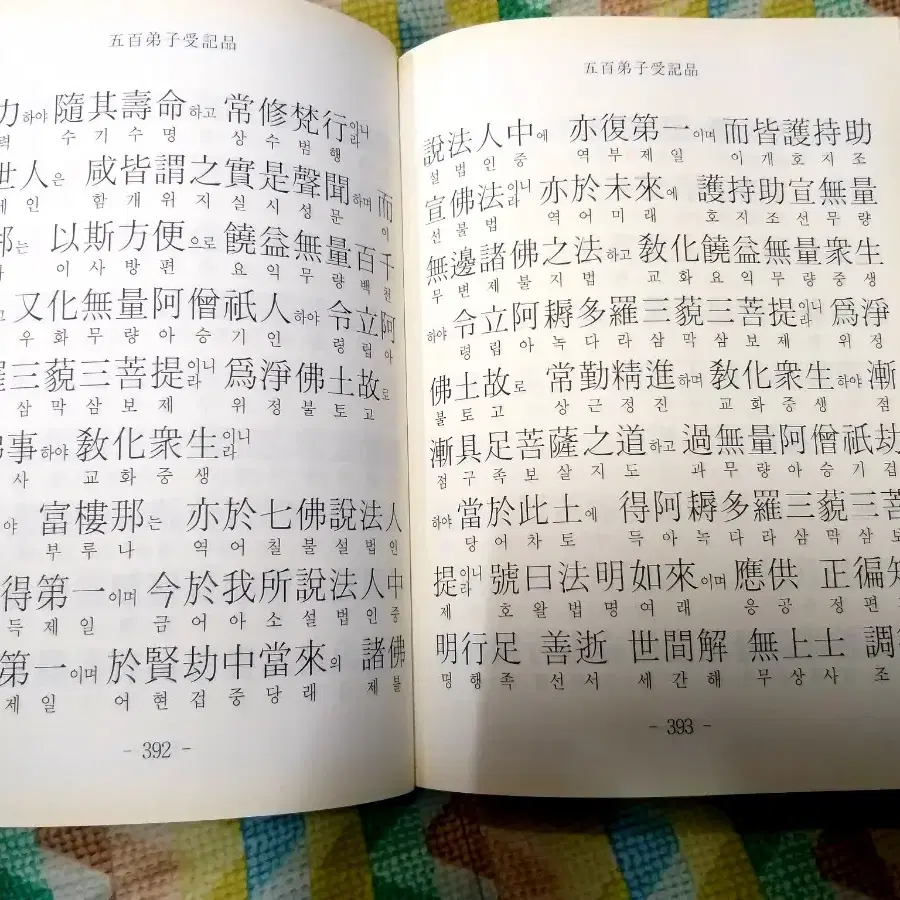 五百弟子受記品
力하야 隨其壽命하고 常修梵行이니라
력 수기수명 상수범행
世人은 咸皆謂之實是聲聞하며 而
세인 함개위지실시성문 이
那는 以斯方便으로 饒益無量百千
나 이사방편 요익무량백천
고 又化無量阿僧祇人하야 令立阿
우화무량아승기인 령립아
羅三藐三菩提이니라 爲淨佛土故로
삼막삼보제 위정불토고
佛事하야 敎化衆生이니라
사 교화중생
야 富樓那는 亦於七佛說法人
부루나 역어칠불설법인
得第一이며 今於我所說法人中
득제일 금어아소설법인중
第一이며 於賢劫中當來의 諸佛
제일 어현겁중당래 제불
- 392 -
五百弟子受記品
說法人中에 亦復第一이며 而皆護持助
설법인중 역부제일 이개호지조
宣佛法이니라 亦於未來에 護持助宣無量
선불법 역어미래 호지조선무량
無邊諸佛之法하고 敎化饒益無量衆生
무변제불지법 교화요익무량중생
하야 令立阿耨多羅三藐三菩提이니라 爲淨
령립아녹다라삼막삼보제 위정
佛土故로 常勤精進하며 敎化衆生하야 漸
불토고 상근정진 교화중생 점
漸具足菩薩之道하고 過無量阿僧祇劫
점구족보살지도 과무량아승기겁
하야 當於此土에 得阿耨多羅三藐三菩
당어차토 득아녹다라삼막삼보
提이니라 號曰法明如來이며 應供 正徧知
제 호왈법명여래 응공 정편
明行足 善逝 世間解 無上士 調
명행족 선서 세간해 무상사 조
- 393 -